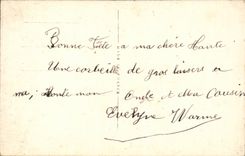 Bonne Fête a ma chère Tante
Une corbeille de gros baisers a
ma Tante mon Oncle et Cousin
Evelyne